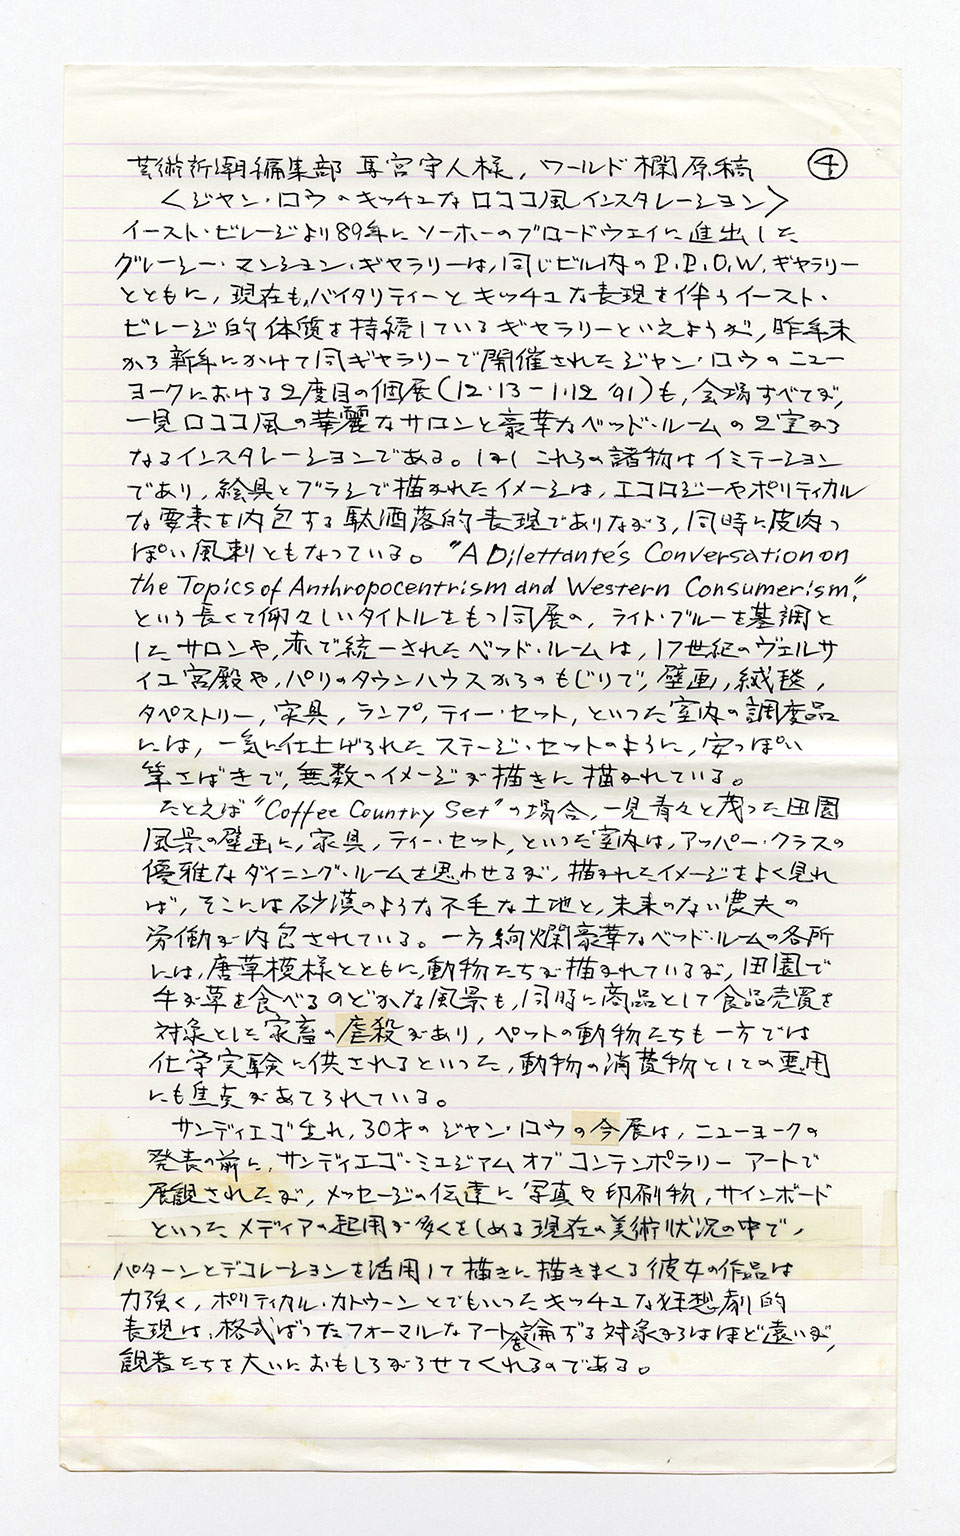 芸術新潮編集部 馬宮守人様, ワールド欄原稿 ④
〈ジャン・ロウのキッチュなロココ風インスタレーション〉
イースト・ビレージより89年にソーホーのブロードウェイに進出した
グレーシー・マンション・ギャラリーは, 同じビル内のP.P.O.W.ギャラリー
とともに, 現在も,バイタリティーとキッチュな表現を伴うイースト・
ビレージ的体質を持続しているギャラリーといえようが, 昨年末
から新年にかけて同ギャラリーで開催されたジャン・ロウのニュー
ヨークにおける2度目の個展(12・13−1・12 '91)も, 会場すべてが,
一見ロココ風の華麗なサロンと豪華なベッド・ルームの2室から
なるインスタレーションである。しかしこれらの諸物はイミテーション
であり, 絵具とブラシで描かれたイメージは, エコロジーやポリティカル
な要素を内包する駄洒落的表現でありながら, 同時に皮肉っ
ぽい風刺ともなっている。“A Dilettante's Conversation on
the Topics of Anthropocentrism and Western Consumerism”,
という長くて仰々しいタイトルをもつ同展の, ライト・ブルーを基調と
したサロンや, 赤で統一されたベッド・ルームは, 17世紀のヴェルサ
イユ宮殿や, パリのタウンハウスからのもじりで, 壁画, 絨毯,
タペストリー, 家具, ランプ, ティー・セット, といった室内の調度品
には, 一気に仕上げられたステージ・セットのように, 安っぽい
筆さばきで, 無数のイメージが描きに描かれている。
たとえば“Coffee Country Set”の場合, 一見青々と茂った田園
風景の壁画に, 家具, ティー・セット, といった室内は, アッパー・クラスの
優雅なダイニング・ルームを思わせるが, 描かれたイメージをよく見れ
ば, そこには砂漠のような不毛な土地と, 未来のない農夫の
労働が内包されている。一方絢爛豪華なベッド・ルームの各所
には, 唐草模様とともに, 動物たちが描かれているが, 田園で
牛が草を食べるのどかな風景も, 同時に商品として食品売買を
対象とした家畜の虐殺があり, ペットの動物たちも一方では
化学実験に供されるといった, 動物の消費物としての悪用
にも焦点があてられている。
サンディエゴ生れ, 30才のジャン・ロウの今展は, ニューヨークの
発表の前に, サンディエゴ・ミュジアム オブ コンテンポラリー アートで
展観されたが, メッセージの伝達に写真や印刷物, サインボード
といったメディアの起用が多くをしめる現在の美術状況の中で,
パターンとデコレーションを活用して描きに描きまくる彼女の作品は
力強く, ポリティカル・カトゥーンとでもいったキッチュな狂想劇的
表現は, 格式ばったフォーマルなアートを論ずる対象からはほど遠いが,
観者たちを大いにおもしろがらせてくれるのである。